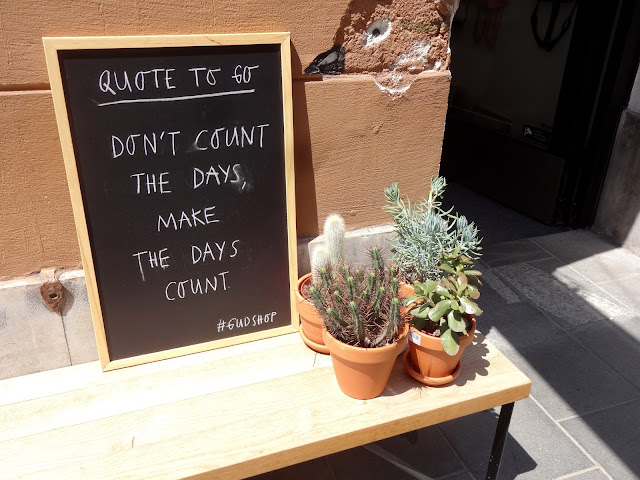 QUOTE TO GO
DON'T COUNT
THE DAYS,
MAKE
THE DAYS
COUNT
#GUDSHOP